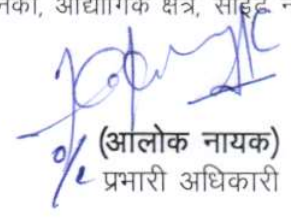 औद्योगिक क्षेत्र, साईट
(आलोक नायक)
प्रभारी अधिकारी